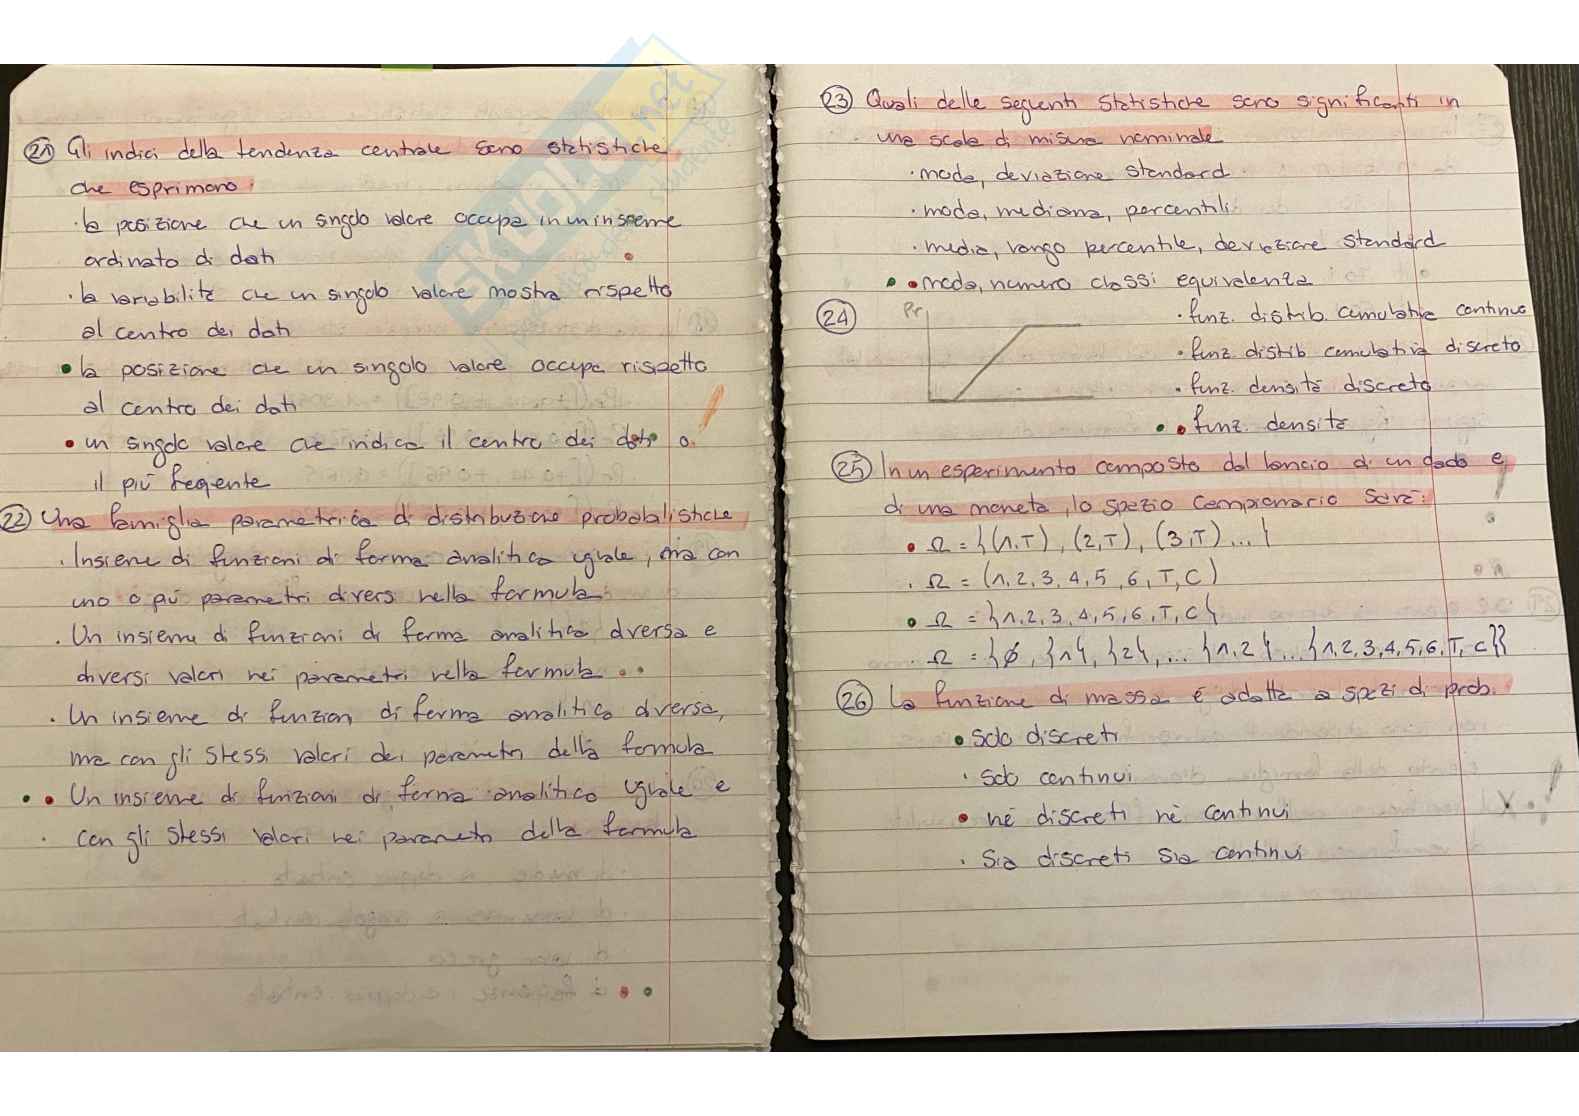 21 Gli indici della tendenza centrale sono statistiche
che esprimono:
· la posizione che un singolo valore occupa in un insieme
ordinato di dati
· la variabilità che un singolo valore mostra rispetto
al centro dei dati
• la posizione che un singolo valore occupa rispetto
al centro dei dati
• un singolo valore che indica il centro dei dati o
il più freqente
22 Una famiglia parametrica di distribuzione probabalistiche
. Insieme di funzioni di forma analitica uguale, ma con
uno o più parametri diversi nella formula
. Un insieme di funzioni di forma analitica diversa e
diversi valori nei parametri nella formula
. Un insieme di funzioni di forma analitica diversa,
ma con gli stessi valori dei parametri della formula
• • Un insieme di funzioni di forma analitica uguale e
con gli stessi valori nei parametri della formula
23 Quali delle seguenti statistiche sono significanti in
una scala di misura nominale
· moda, deviazione standard
· moda, mediana, percentili
· media, rango percentile, deviazione standard
• • moda, numero classi equivalenza
24 Pr
· funz. distrib. cumulativa continua
· funz. distrib cumulativa discreta
· funz. densità discreta
• • funz. densità
25 In un esperimento composto dal lancio di un dado e
di una moneta, lo spazio campionario sarà:
• Ω = {(1,T), (2,T), (3,T)...}
. Ω = (1, 2, 3, 4, 5, 6, T, C)
• Ω = {1, 2, 3, 4, 5, 6, T, C}
. Ω = {ø, {1}, {2}, ... {1,2} ... {1,2,3,4,5,6,T,C}}
26 La funzione di massa è adatta a spazi di prob.
• solo discreti
· solo continui
• né discreti né continui
· sia discreti sia continui
SKUOLA.net